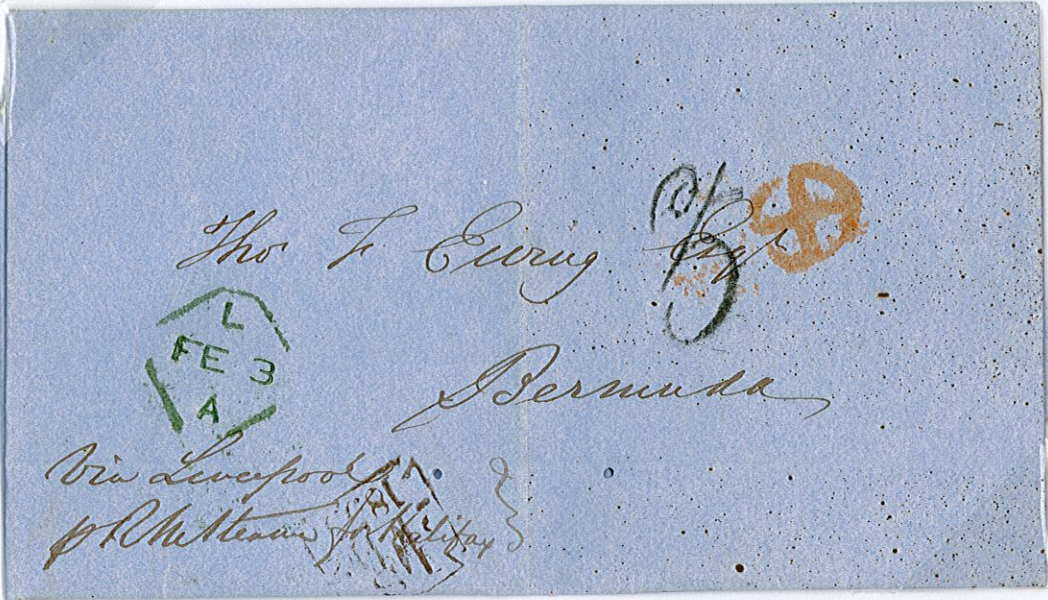 Tho F Ewing Esqr
Bermuda
L
FE 3
A
Via Liverpool
p R M Steamer for Halifax